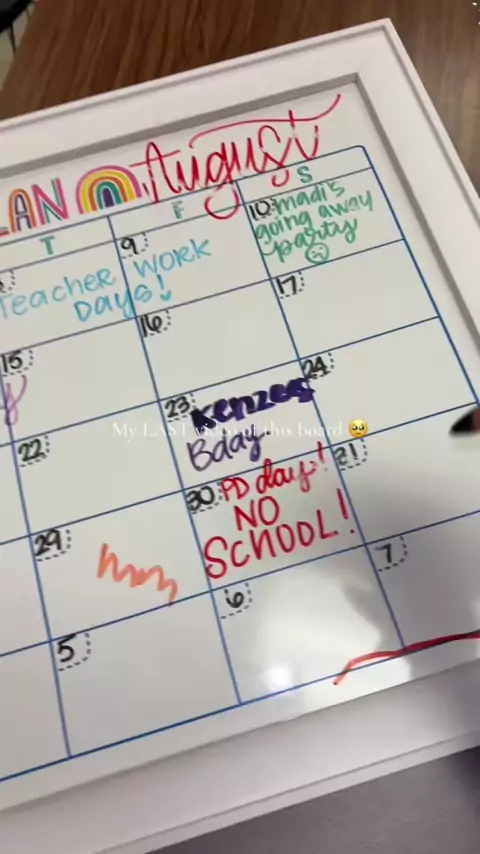 LAN August
T F S
9 10 madi's
going away
party
Teacher Work
Days!
15 16 17
22 23 Kenzes 24
Bday
My LAST video of this board 🥹
29 30 PD day! 21
NO
SCHOOL!
5 6 7